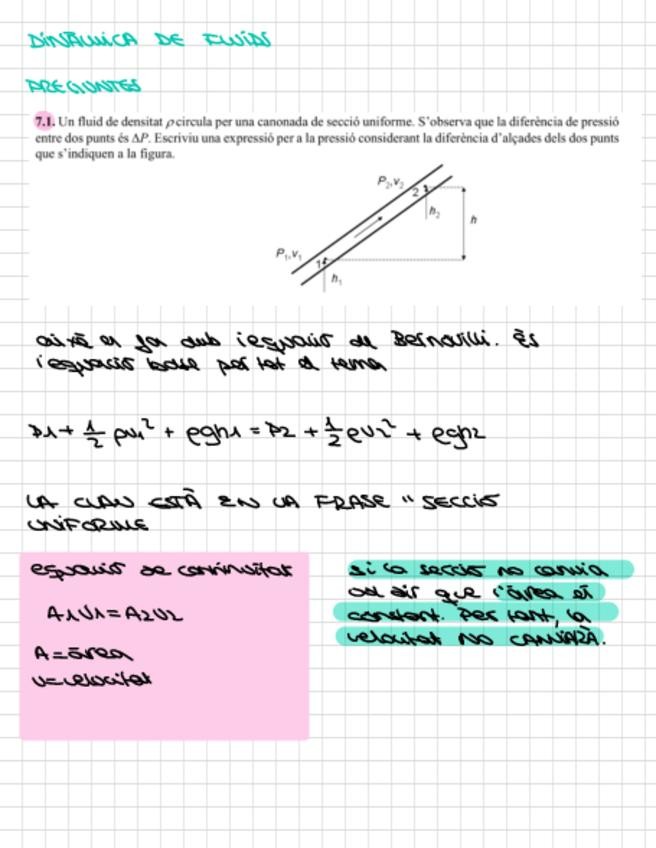 DINÀMICA DE FLUIDS
PREGUNTES
7.1. Un fluid de densitat ρ circula per una canonada de secció uniforme. S'observa que la diferència de pressió
entre dos punts és ΔP. Escriviu una expressió per a la pressió considerant la diferència d'alçades dels dos punts
que s'indiquen a la figura.
P₂,v₂
2
h₂
h
P₁,v₁
1
h₁
això es fa amb l'equació de Bernoulli. És
l'equació base per tot el tema
P1 + 1/2 ρv1² + ρgh1 = P2 + 1/2 ρv2² + ρgh2
LA CLAU ESTÀ EN LA FRASE "SECCIÓ
UNIFORME
equació de continuïtat
A1V1 = A2V2
A = àrea
V = velocitat
si la secció no canvia
vol dir que l'àrea és
constant. Per tant, la
velocitat NO CANVIARÀ.